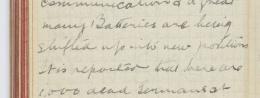 communications & a great
many Batteries are being
shifted up into new positions
It is reported that there are
1,000 dead Germans at